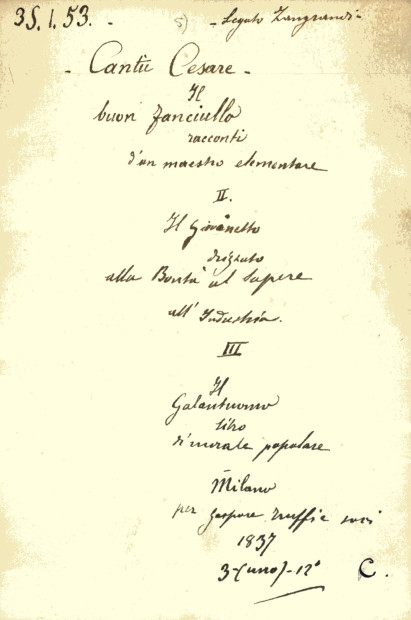 35.1.53. - 5) - Legato Zangrandi -
- Cantù Cesare -
Il
buon fanciullo
racconti
d'un maestro elementare
II.
Il Giovinetto
drizzato
alla Bontà al Sapere
all' Industria.
III
Il
Galantuomo
libro
di morale popolare
Milano
per Gaspare Truffi e soci
1837
3-(uno)-12° C.